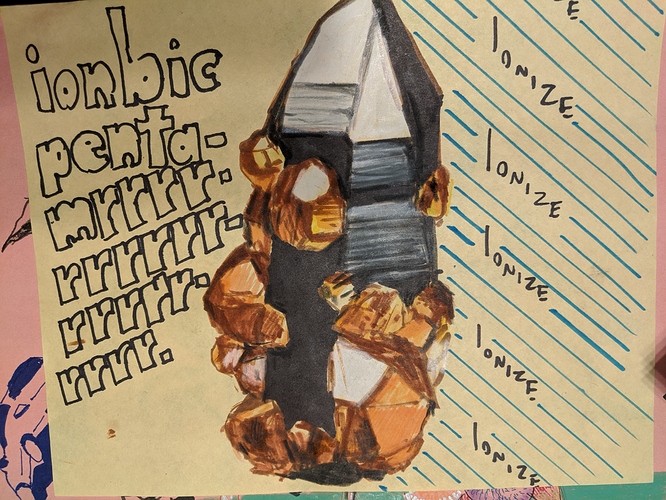 ionbic
penta-
mrrrr.
rrrrrr-
rrrrr.
rrrr.
IONIZE
IONIZE
IONIZE
IONIZE
IONIZE